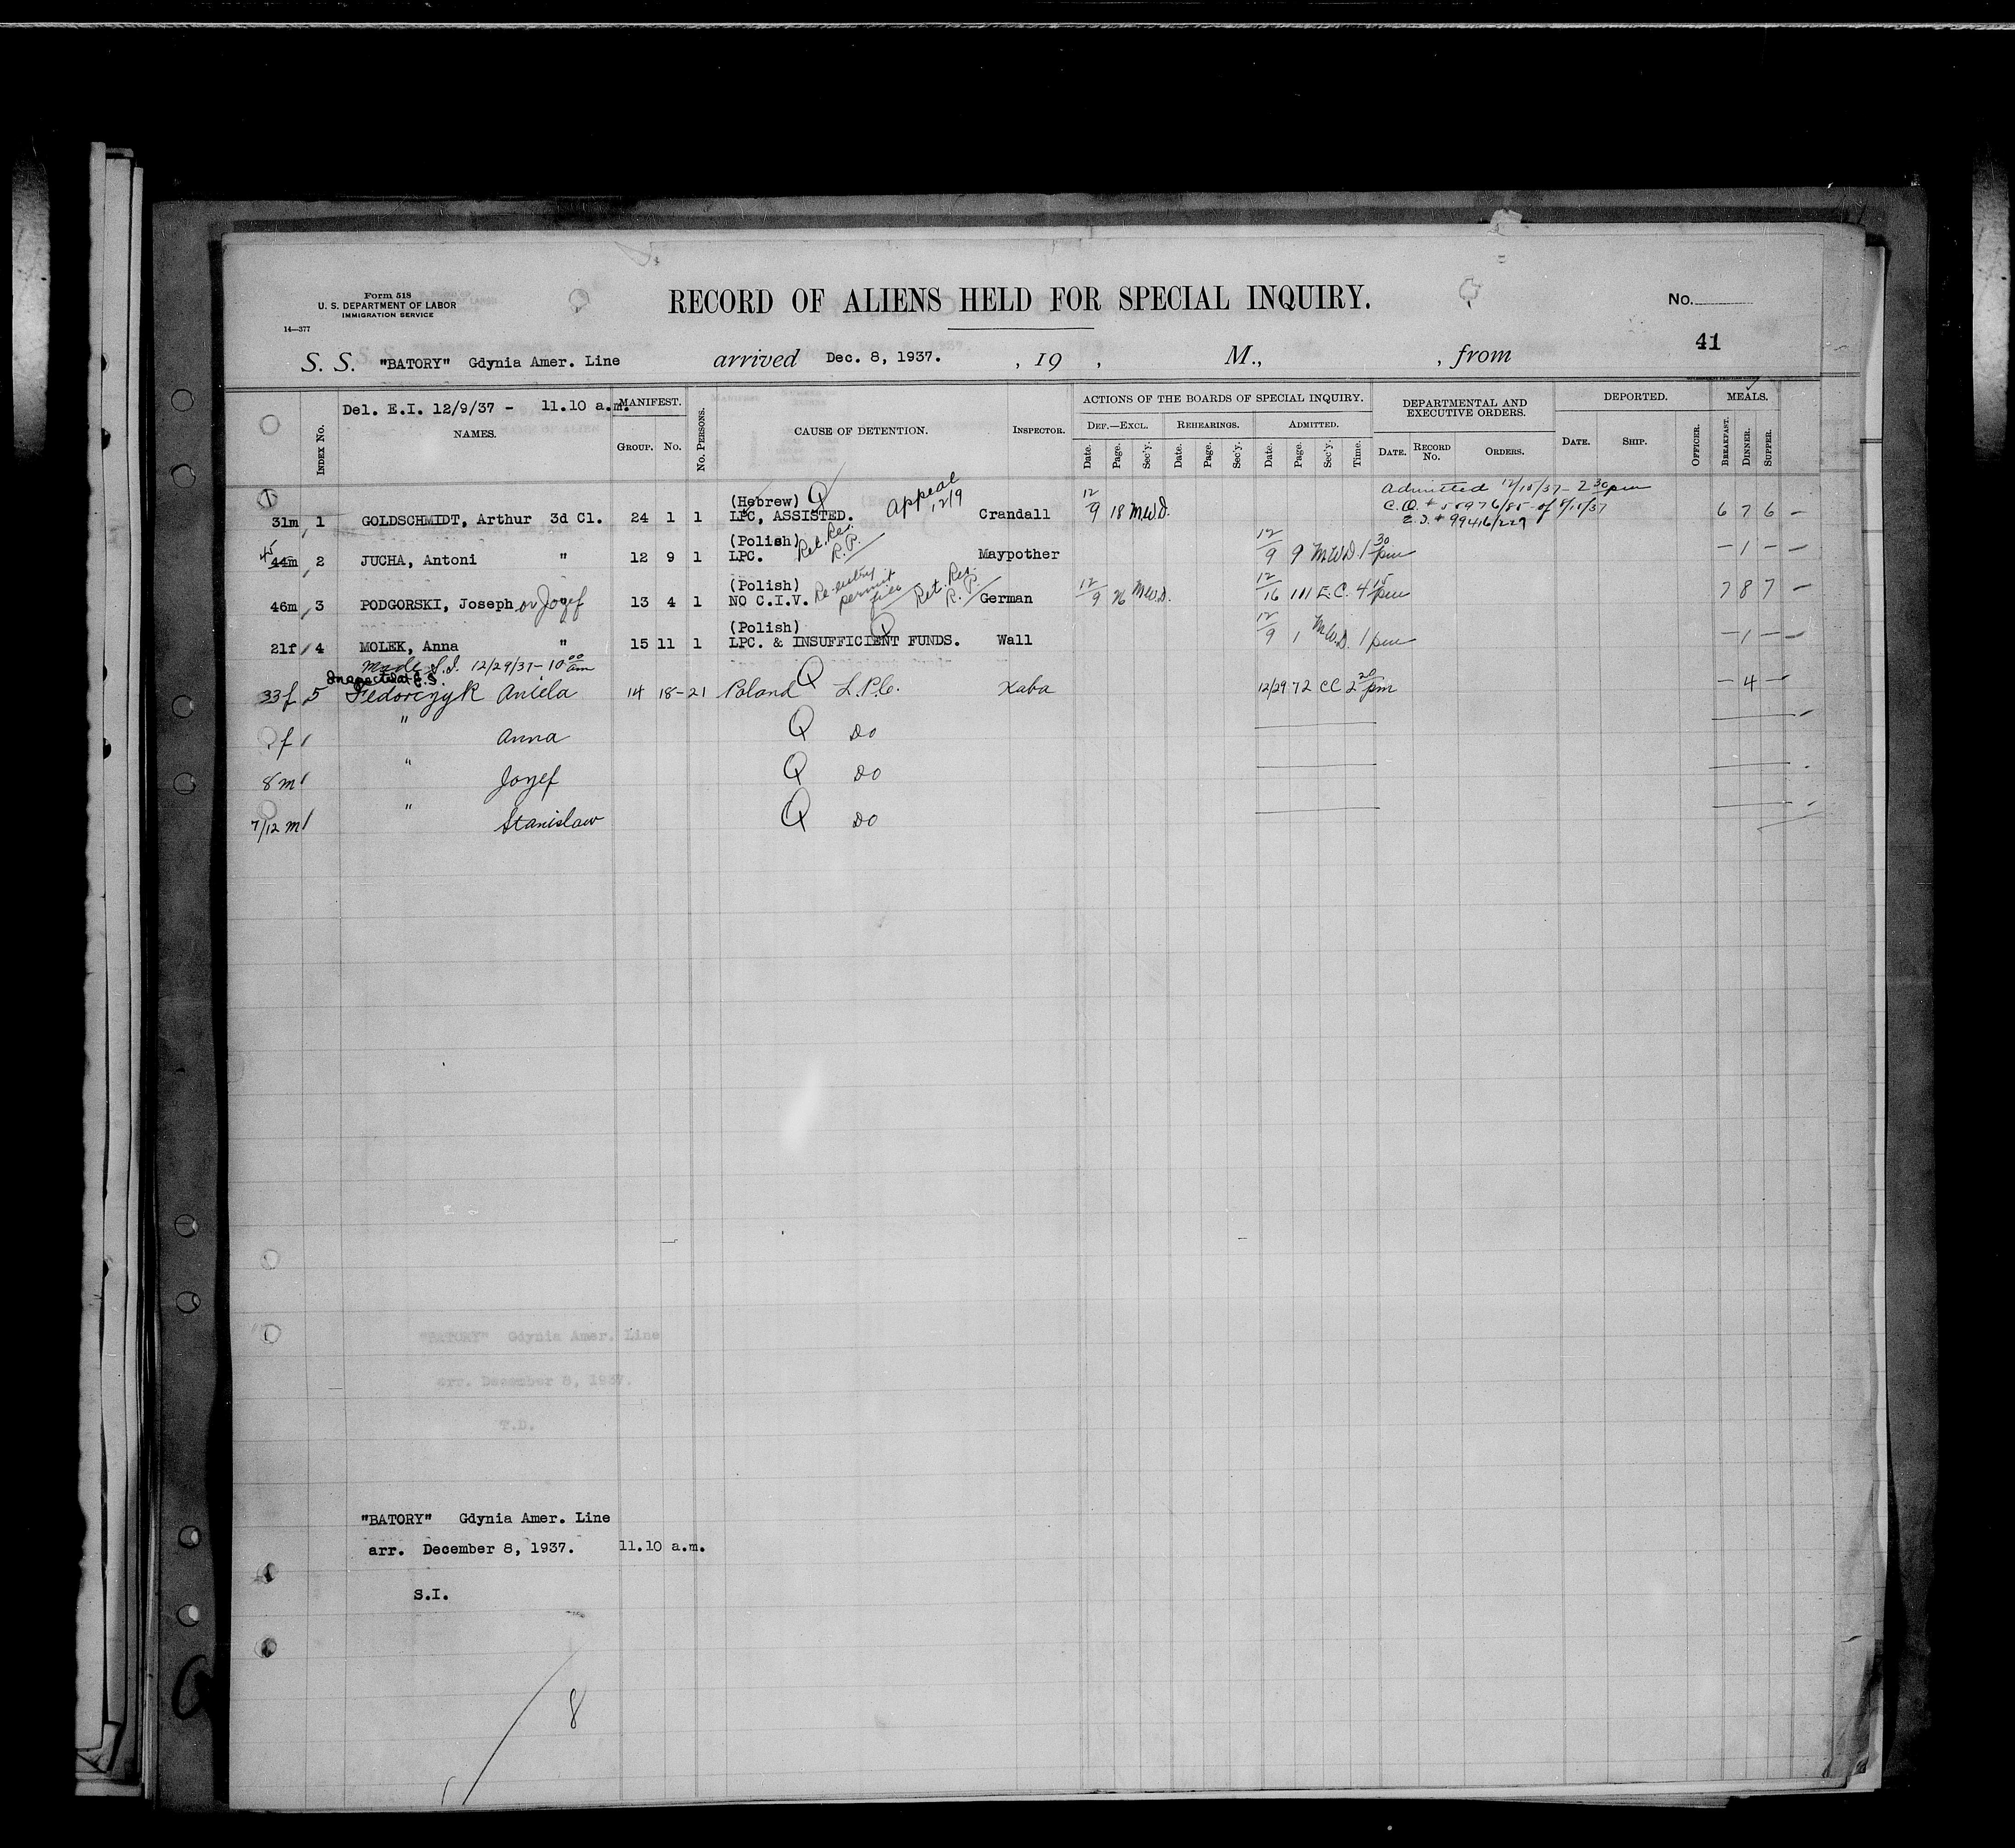 Form 518
U. S. DEPARTMENT OF LABOR
IMMIGRATION SERVICE
14—377
RECORD OF ALIENS HELD FOR SPECIAL INQUIRY.
No.
41
S. S. "BATORY" Gdynia Amer. Line arrived Dec. 8, 1937. , 19 , M., , from
Del. E.I. 12/9/37 - 11.10 a.m.
INDEX No. NAMES. MANIFEST. GROUP. No. No. PERSONS. CAUSE OF DETENTION. INSPECTOR. ACTIONS OF THE BOARDS OF SPECIAL INQUIRY. DEPARTMENTAL AND EXECUTIVE ORDERS. DEPORTED. MEALS.
DEF.—EXCL. REHEARINGS. ADMITTED.
Date. Page. Sec'y. Date. Page. Sec'y. Date. Page. Sec'y. Time. DATE. RECORD No. ORDERS. DATE. SHIP. OFFICER. BREAKFAST. DINNER. SUPPER.
1 (Hebrew) Q Appeal 12/9 Admitted 12/10/37 - 2 30 pm
31m 1 GOLDSCHMIDT, Arthur 3d Cl. 24 1 1 LPC, ASSISTED. Crandall 12/9 18 M.W.D. 6 7 6 —
E.I. # 99416/229
(Polish) Ret. Res. R.P.
45 44m 2 JUCHA, Antoni " 12 9 1 LPC. Maypother 12/9 9 M.W.D 1 30 pm — 1 — —
(Polish) Re-entry permit Ret. Res. R.P.
46m 3 PODGORSKI, Joseph or Jozef 13 4 1 NO C.I.V. German 12/9 26 M.W.D. 12/16 111 E.C. 4 15 pm 7 8 7 —
(Polish) Q
21f 4 MOLEK, Anna " 15 11 1 LPC. & INSUFFICIENT FUNDS. Wall 12/9 1 M.W.D. 1 pm — 1 — —
Made S.I. 12/29/37 - 10 00 am
Inspected at
33 f 5 Fedorczyk Aniela 14 18-21 Poland Q L.P.C. Kaba 12/29 72 CC 2 20 pm — 4 — —
f " Anna Q Do
8 m " Jozef Q Do
7/12 m " Stanislaw Q Do
"BATORY" Gdynia Amer. Line
arr. December 8, 1937.
T.D.
"BATORY" Gdynia Amer. Line
arr. December 8, 1937. 11.10 a.m.
S.I.
8